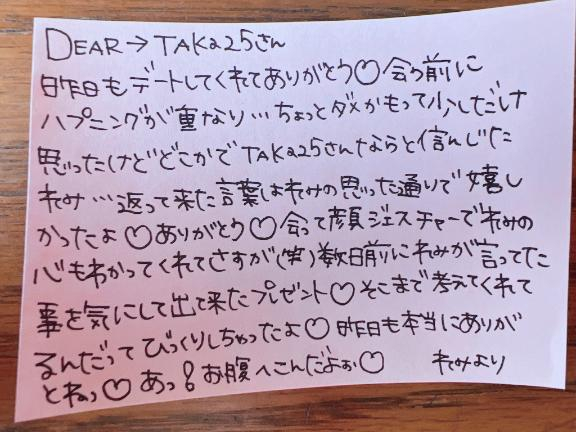 DEAR→TAKa25さん
昨日もデートしてくれてありがとう♡会う前に
ハプニングが重なり…ちょっとダメかもって少しだけ
思ったけどどこかでTAKa25さんならと信んじた
れみ…返って来た言葉はれみの思った通りで嬉し
かったよ♡ありがとう♡会って顔ジェスチャーでれみの
心もわかってくれてさすが(笑)数日前にれみが言ってた
事を気にして出て来たプレゼント♡そこまで考えてくれて
るんだってびっくりしちゃったよ♡昨日も本当にありが
とねっ♡あっ!お腹へこんだよぉ♡ れみより